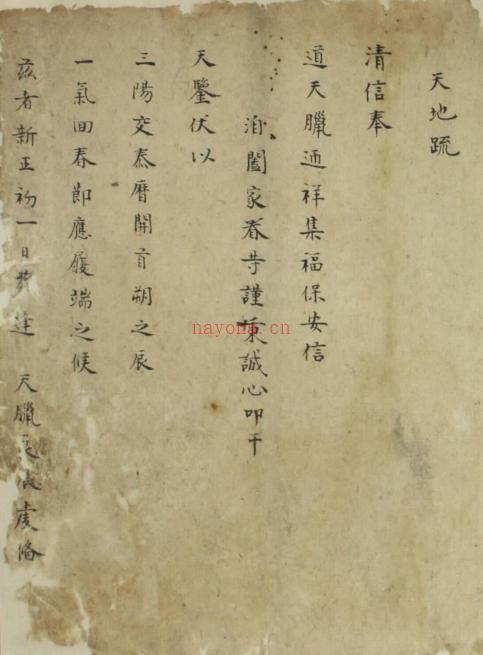 天地疏
清信奉
道天臘迊祥集福保安信
洎闔家眷等謹秉誠心叩干
天鑒伏以
三陽交泰曆開首朔之辰
一氣回春節應履端之候
茲者新正初一日 逢 天臘良 虔備
nayona.cn